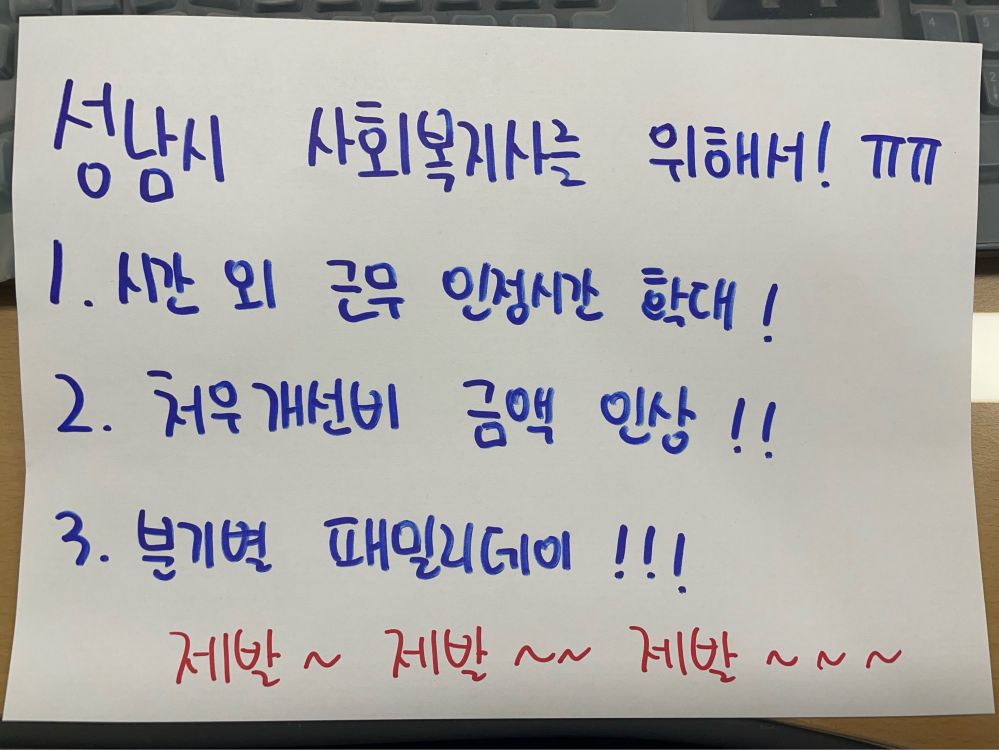 성남시 사회복지사를 위해서! ㅠㅠ
1. 시간 외 근무 인정시간 확대!
2. 처우개선비 금액 인상!!
3. 분기별 패밀리데이!!!
제발~ 제발~~ 제발~~~